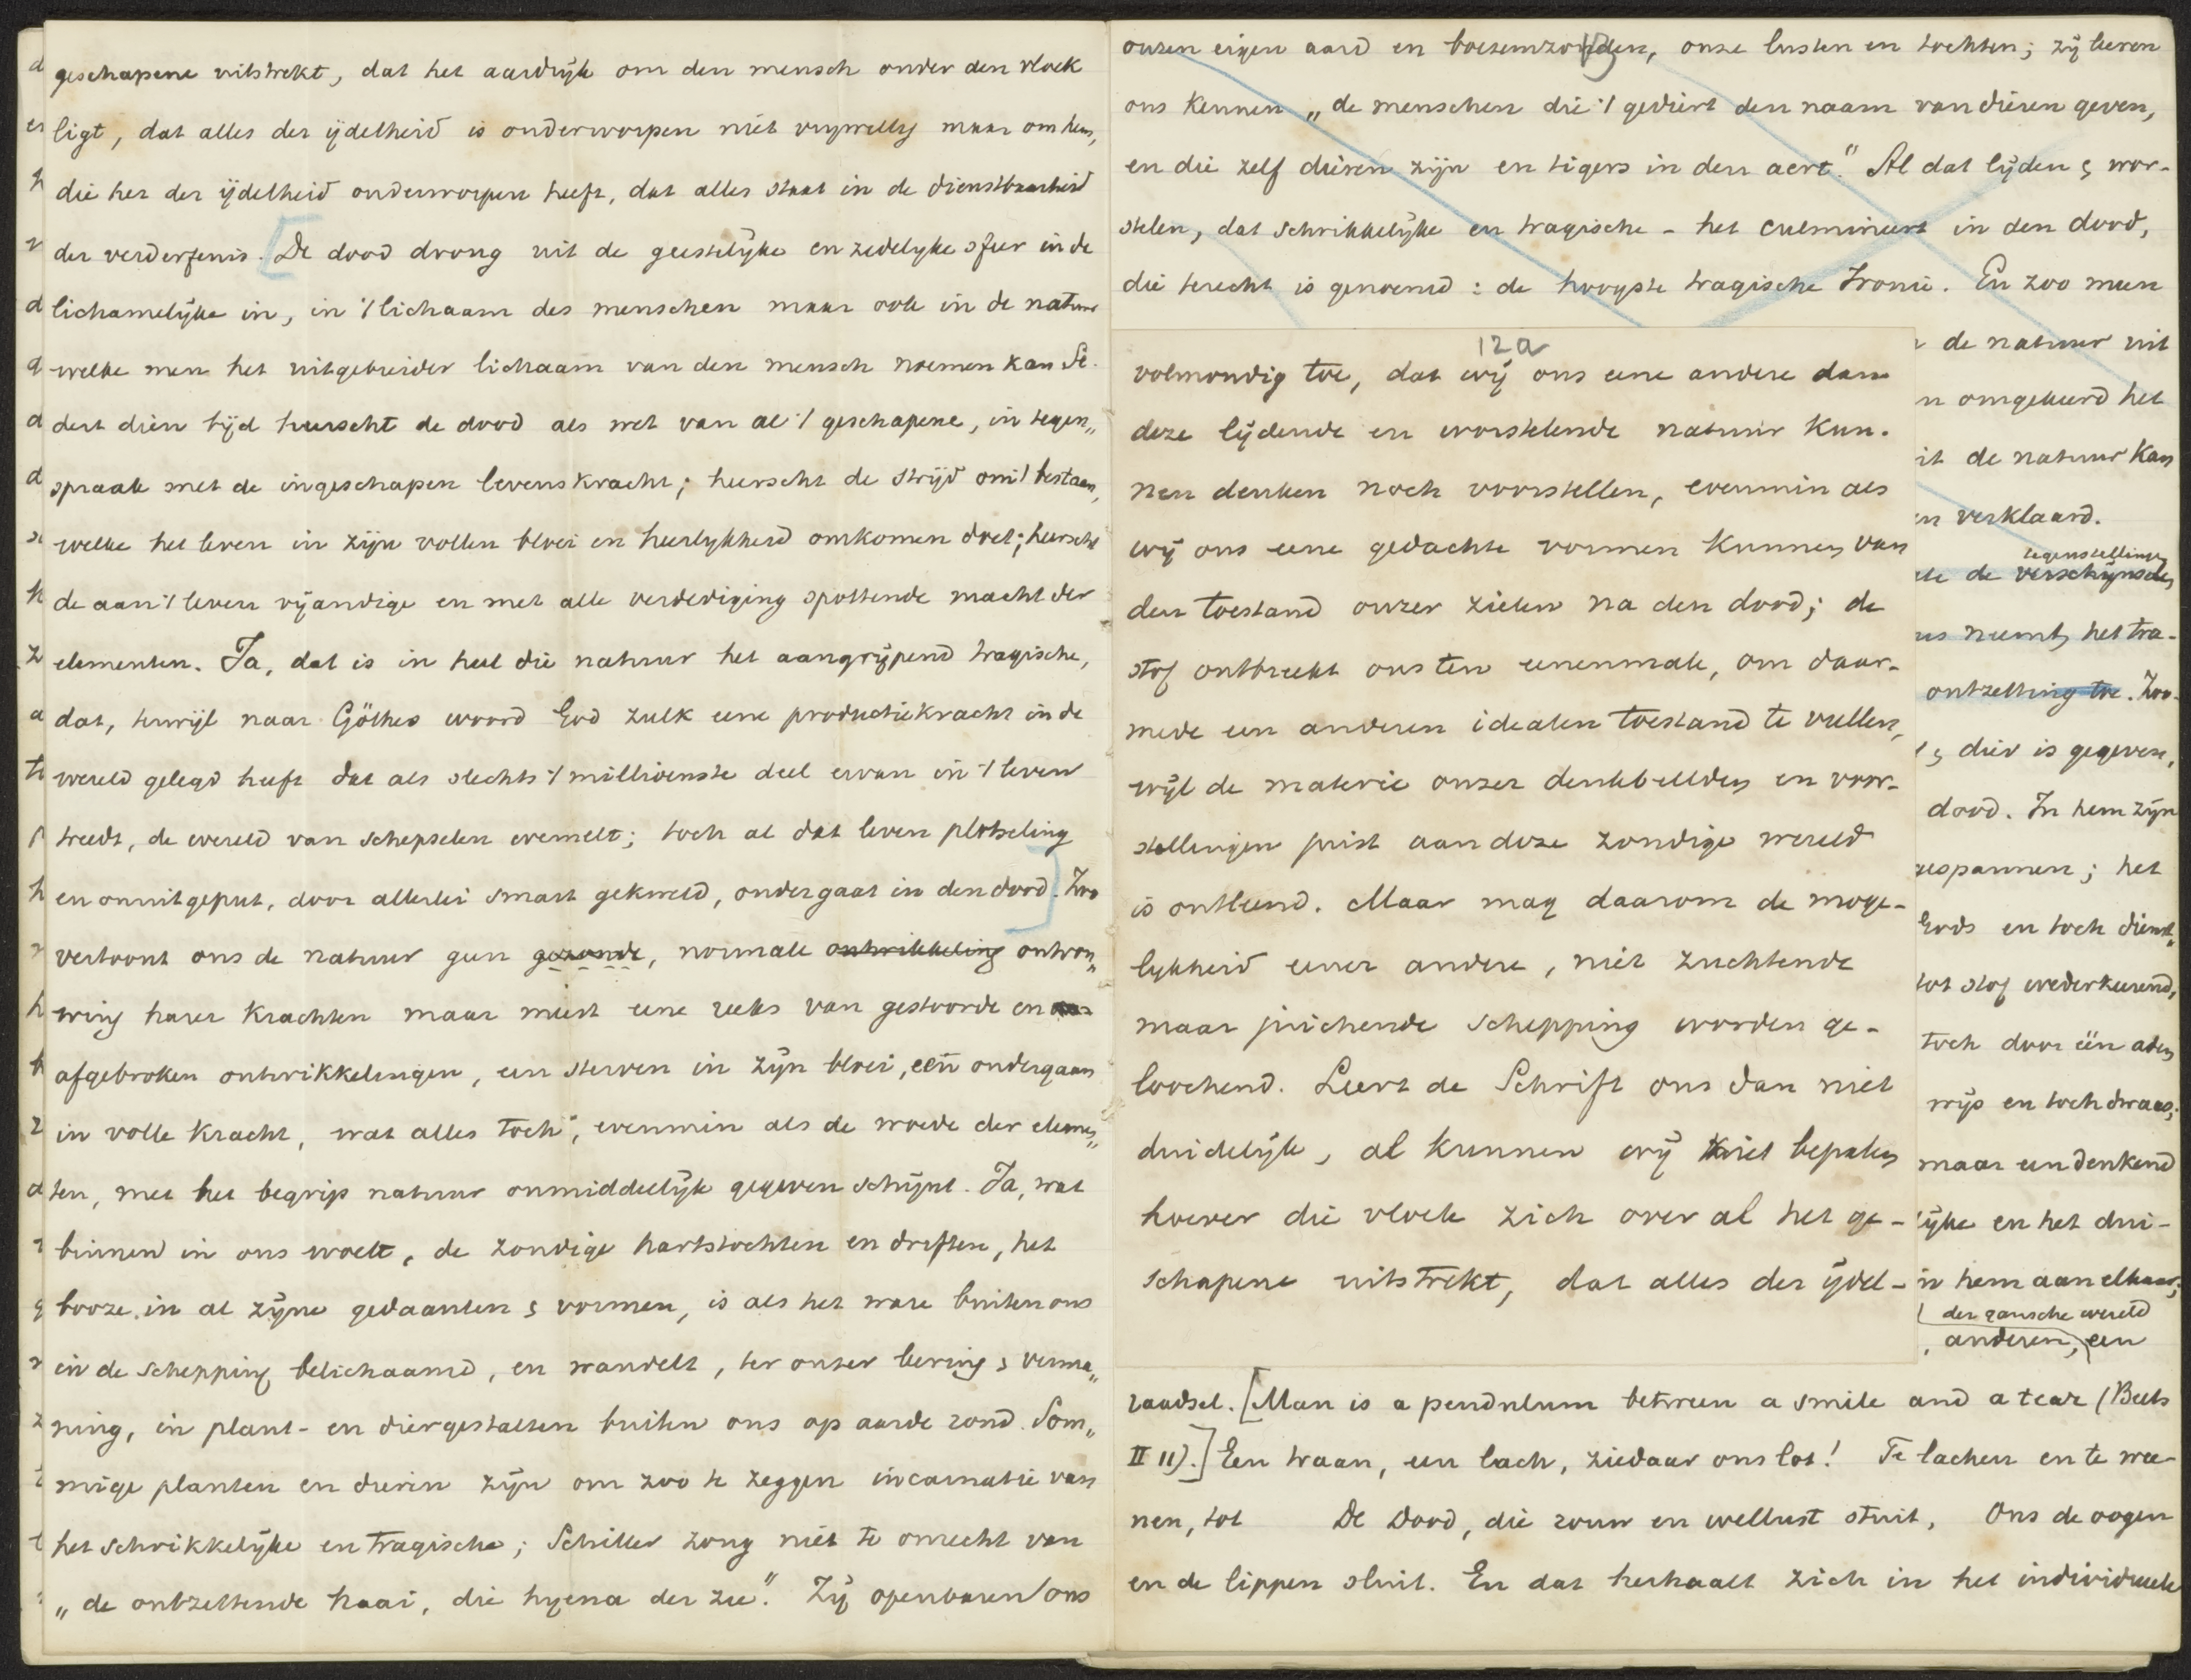 geschapene uitstrekt, dat het aardrijk om den mensch onder den vloek
ligt, dat alles der ijdelheid is onderworpen niet vrijwillig maar om hem,
die het der ijdelheid onderworpen heeft, dat alles staat in de dienstbaarheid
der verderfenis. [De dood drong uit de geestelijke en zedelyke sfeer in de
lichamelijke in, in 't lichaam des menschen maar ook in de natuur
welke men het uitgebreider lichaam van den mensch noemen kan Se-
dert dien tijd heerscht de dood als wet van al 't geschapene, in tegen„
spraak met de ingeschapen levenskracht; heerscht de strijd om 't bestaan,
welke het leven in zijn vollen bloei en heerlykheid omkomen doet; heerscht
de aan 't leven vijandige en met alle verdediging spottende macht der
elementen. Ja, dat is in heel die natuur het aangrijpend tragische,
dat, terwijl naar Göthes woord God zulk eene productiekracht in de
wereld gelegd heeft dat als slechts 't millioenste deel ervan in 't leven
treedt, de wereld van schepselen wemelt; toch al dat leven plotseling
en onuitgeput, door allerlei smart gekweld, ondergaat in den dood]. Zoo
vertoont ons de natuur geen gezonde, normale ontwikkeling ontvou„
wing harer krachten maar meest eene reeks van gestoorde en
afgebroken ontwikkelingen, een sterven in zijn bloei, een ondergaan
in volle kracht, wat alles toch, evenmin als de woede der elemen„
ten, met het begrip natuur onmiddellijk gegeven schijnt. Ja, wat
binnen in ons woelt, de zondige hartstochten en driften, het
booze in al zijne gedaanten & vormen, is als het ware buiten ons
in de schepping belichaamd, en wandelt, ter onzer leering & verma„
ning, in plant- en diergestalten buiten ons op aarde rond. Som„
mige planten en dieren zijn om zoo te zeggen incarnatie van
het schrikkelijke en tragische; Schiller zong niet te onrecht van
„de ontzettende haai, die hyena der zee". Zij openbaren ons
onzen eigen aard en boezemzonden, onze lusten en tochten; zij leeren
ons kennen „de menschen die 't gediert den naam van dieren geven,
en die zelf dieren zijn en tigers in den aert." Al dat lijden & wor-
stelen, dat schrikkelijke en tragische - het culmineert in den dood,
die terecht is genoemd: de hoogste tragische Ironie. En zoo men
12a
volmondig toe, dat wij ons eene andere dan
deze lijdende en worstelende natuur kun-
nen denken noch voorstellen, evenmin als
wij ons eene gedachte vormen kunnen van
den toestand onzer zielen na den dood; de
stof ontbreekt ons ten eenenmale, om daar-
mede een anderen idealen toestand te vullen,
wijl de materie onzer denkbeelden en voor-
stellingen juist aan deze zondige wereld
is ontleend. Maar mag daarom de moge-
lijkheid eener andere, niet zuchtende
maar juichende schepping worden ge-
loochend. Leert de Schrift ons dan niet
duidelijk, al kunnen wij niet bepalen
hoever die vloek zich over al het ge-
schapene uitstrekt, dat alles der ijdel-
de natuur uit
omgekeerd het
de natuur kan
verklaard.
tegenstellingen
de verschijnselen
neemt, het tra-
ontzetting toe. Zoo
& dier is gegeven,
dood. In hem zijn
gespannen; het
Gods en toch dienst„
tot stof wederkeerend,
toch door één adem
wijs en toch dwaas;
maar een denkend
en het dui-
in hem aan elkaar;
der gansche wereld
anderen, een
raadsel. [Man is a pendulum between a smile and a tear (Beets
II 11).] Een traan, een lach, ziedaar ons lot! Te lachen en te wee-
nen, tot De Dood, die rouw en wellust stuit, Ons de oogen
en de lippen sluit. En dat herhaalt zich in het individueele